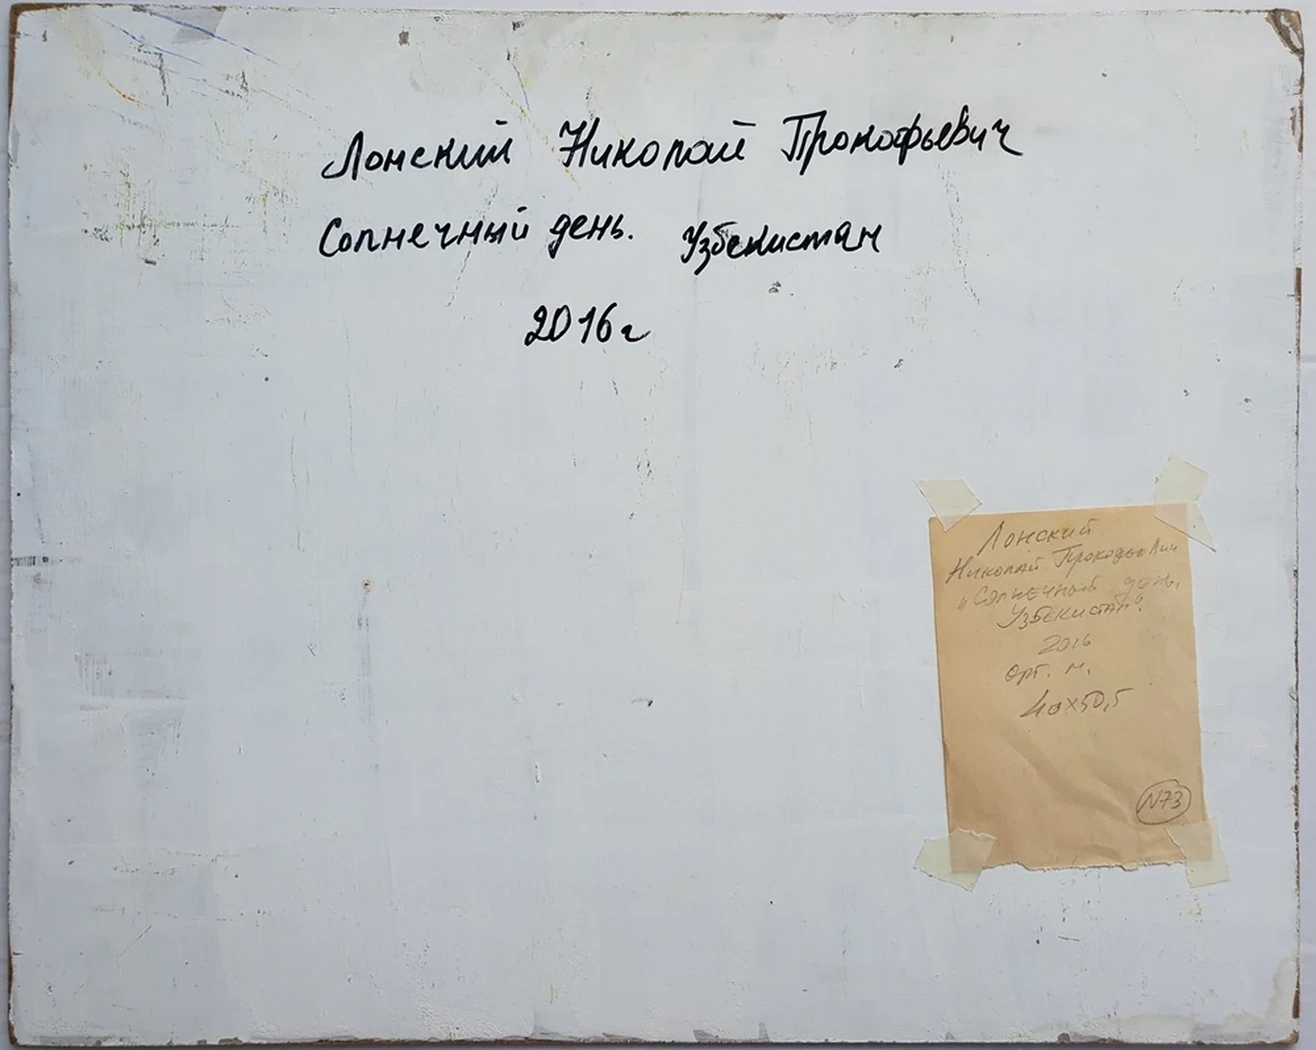 Лонский Николай Прокофьевич
Солнечный день. Узбекистан
2016г
Лонский
Николай Прокофьевич
"Солнечный день.
Узбекистан".
2016
орг. м.
40х50,5
N73